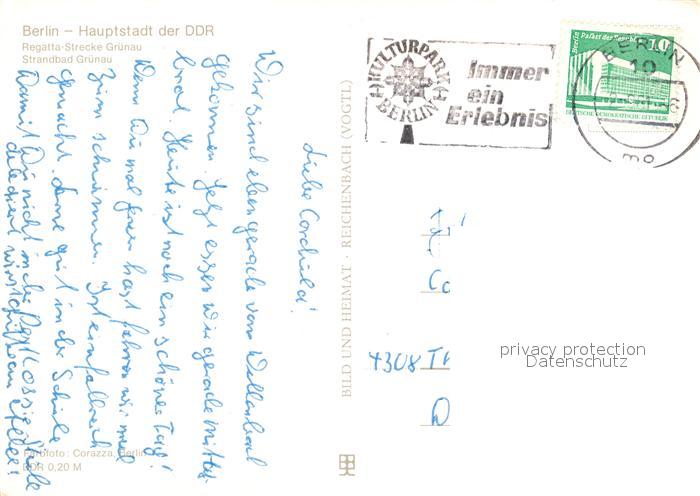 Berlin – Hauptstadt der DDR
Regatta-Strecke Grünau
Strandbad Grünau
KULTURPARK
BERLIN
Immer
ein
Erlebnis
Berlin Palast der Republik
10
DEUTSCHE DEMOKRATISCHE REPUBLIK
BERLIN
10
mo
Liebe
Wir sind eben gerade vom Wellenbad
gekommen. Jetzt essen wir gerade Mittag-
brot. Heute ist noch ein schöner Tag!
Wenn Du mal frei hast fahren wir mal
zum schwimmen. Ist einfallreich
gemacht. Lerne gut in der Schule
Damit Du nicht in der
BILD UND HEIMAT · REICHENBACH (VOGTL)
Co
4308 Th
privacy protection
Datenschutz
Farbfoto: Corazza, Berlin
DDR 0,20 M